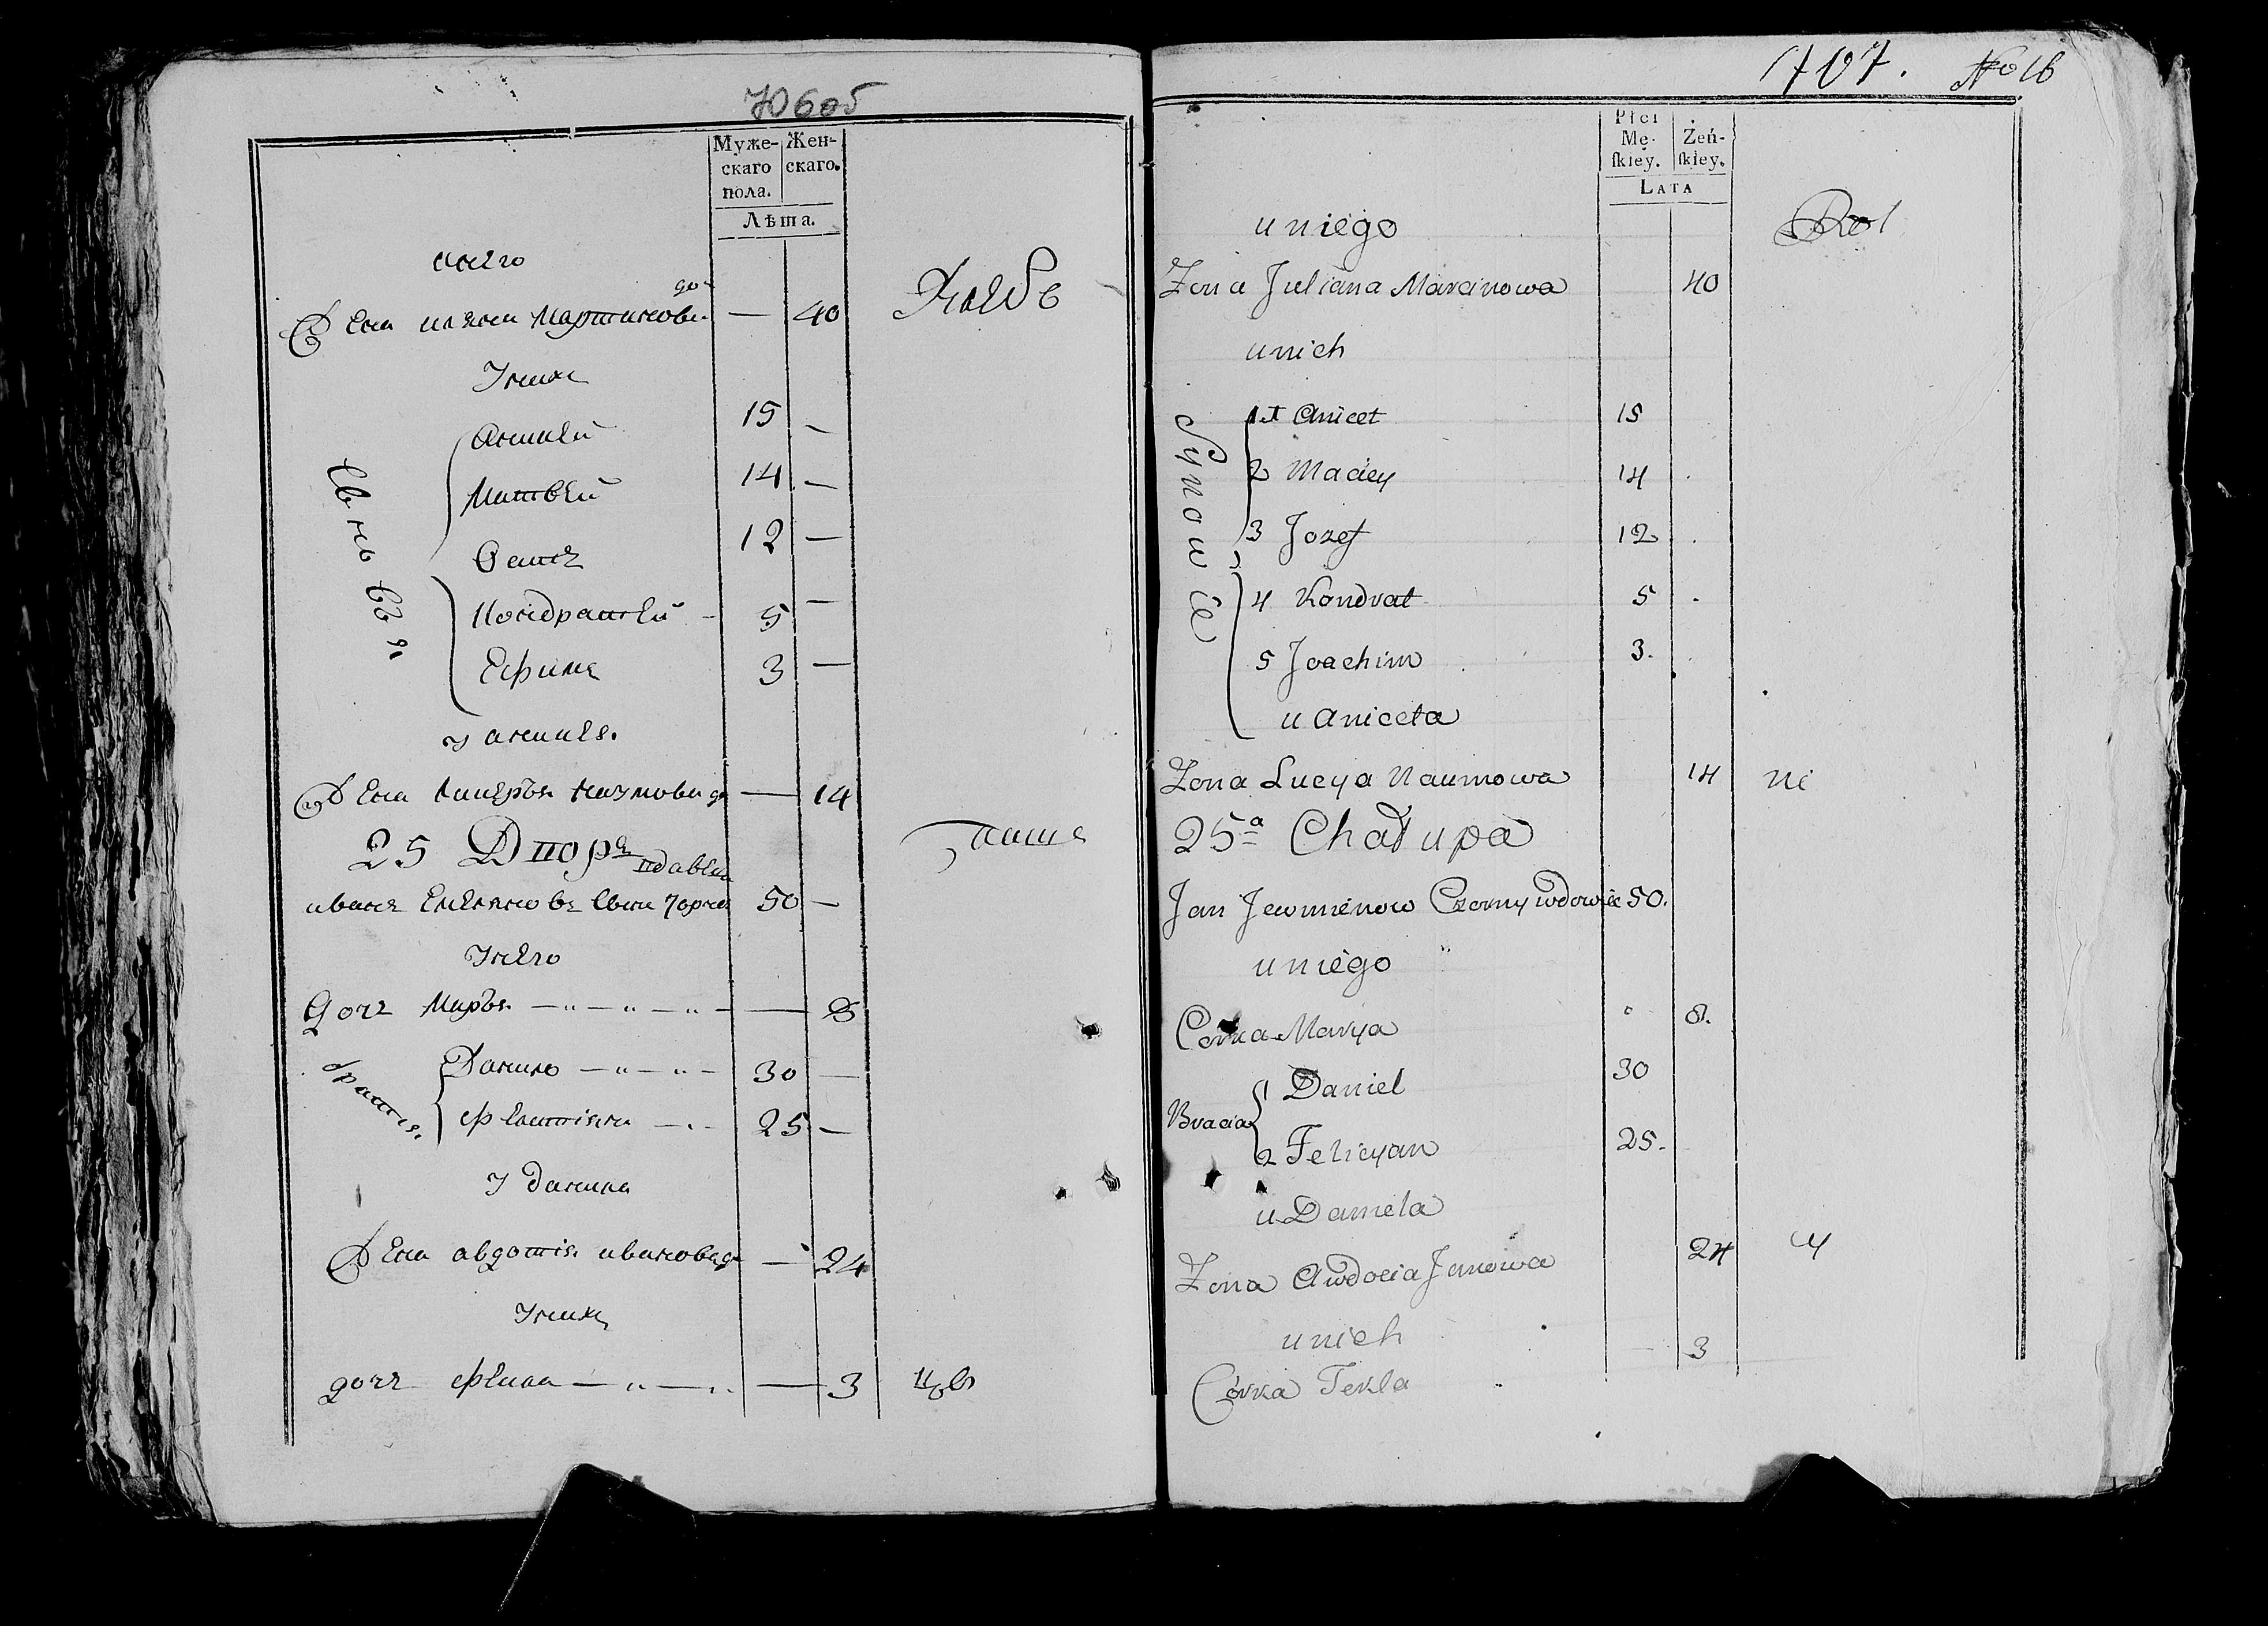 706об
Муже-
скаго
пола.
Жен-
скаго.
Лѣта.
Жена Мартинова до
40
Хлебо
У них
15 —
Матвей 14 —
12 —
Кондратей - 5 —
Ефим 3 —
сыновья
Жена Наумова до — 14
25 Двор
вдовец
50 —
У него
Доч Марья — " — " — " — — 8
братья
Данило — " — " — 30 —
25 —
У Данила
Жена Авдотия Иванова до — 24
У них
доч — " — " — 3
707. No 16
Płci
Mę-
ſkiey.
Żeń-
ſkiey.
LATA
u niego
Rol
Zona Juliana Marcinowa 40
u nich
Synowie
1 Anicet 15
2 Maciey 14
3 Jozef 12
4 Kondrat 5
5 Joachim 3.
u Aniceta
Zona Lucya Naumowa 14 ni
25ª Chałupa
Jan Czorny wdowiec 50.
u niego
Corka Marya 8.
Bracia
1 Daniel 30
2 Felicyan 25.
u Daniela
Zona Awdocia Janowa 24
u nich
Córka Tekla 3